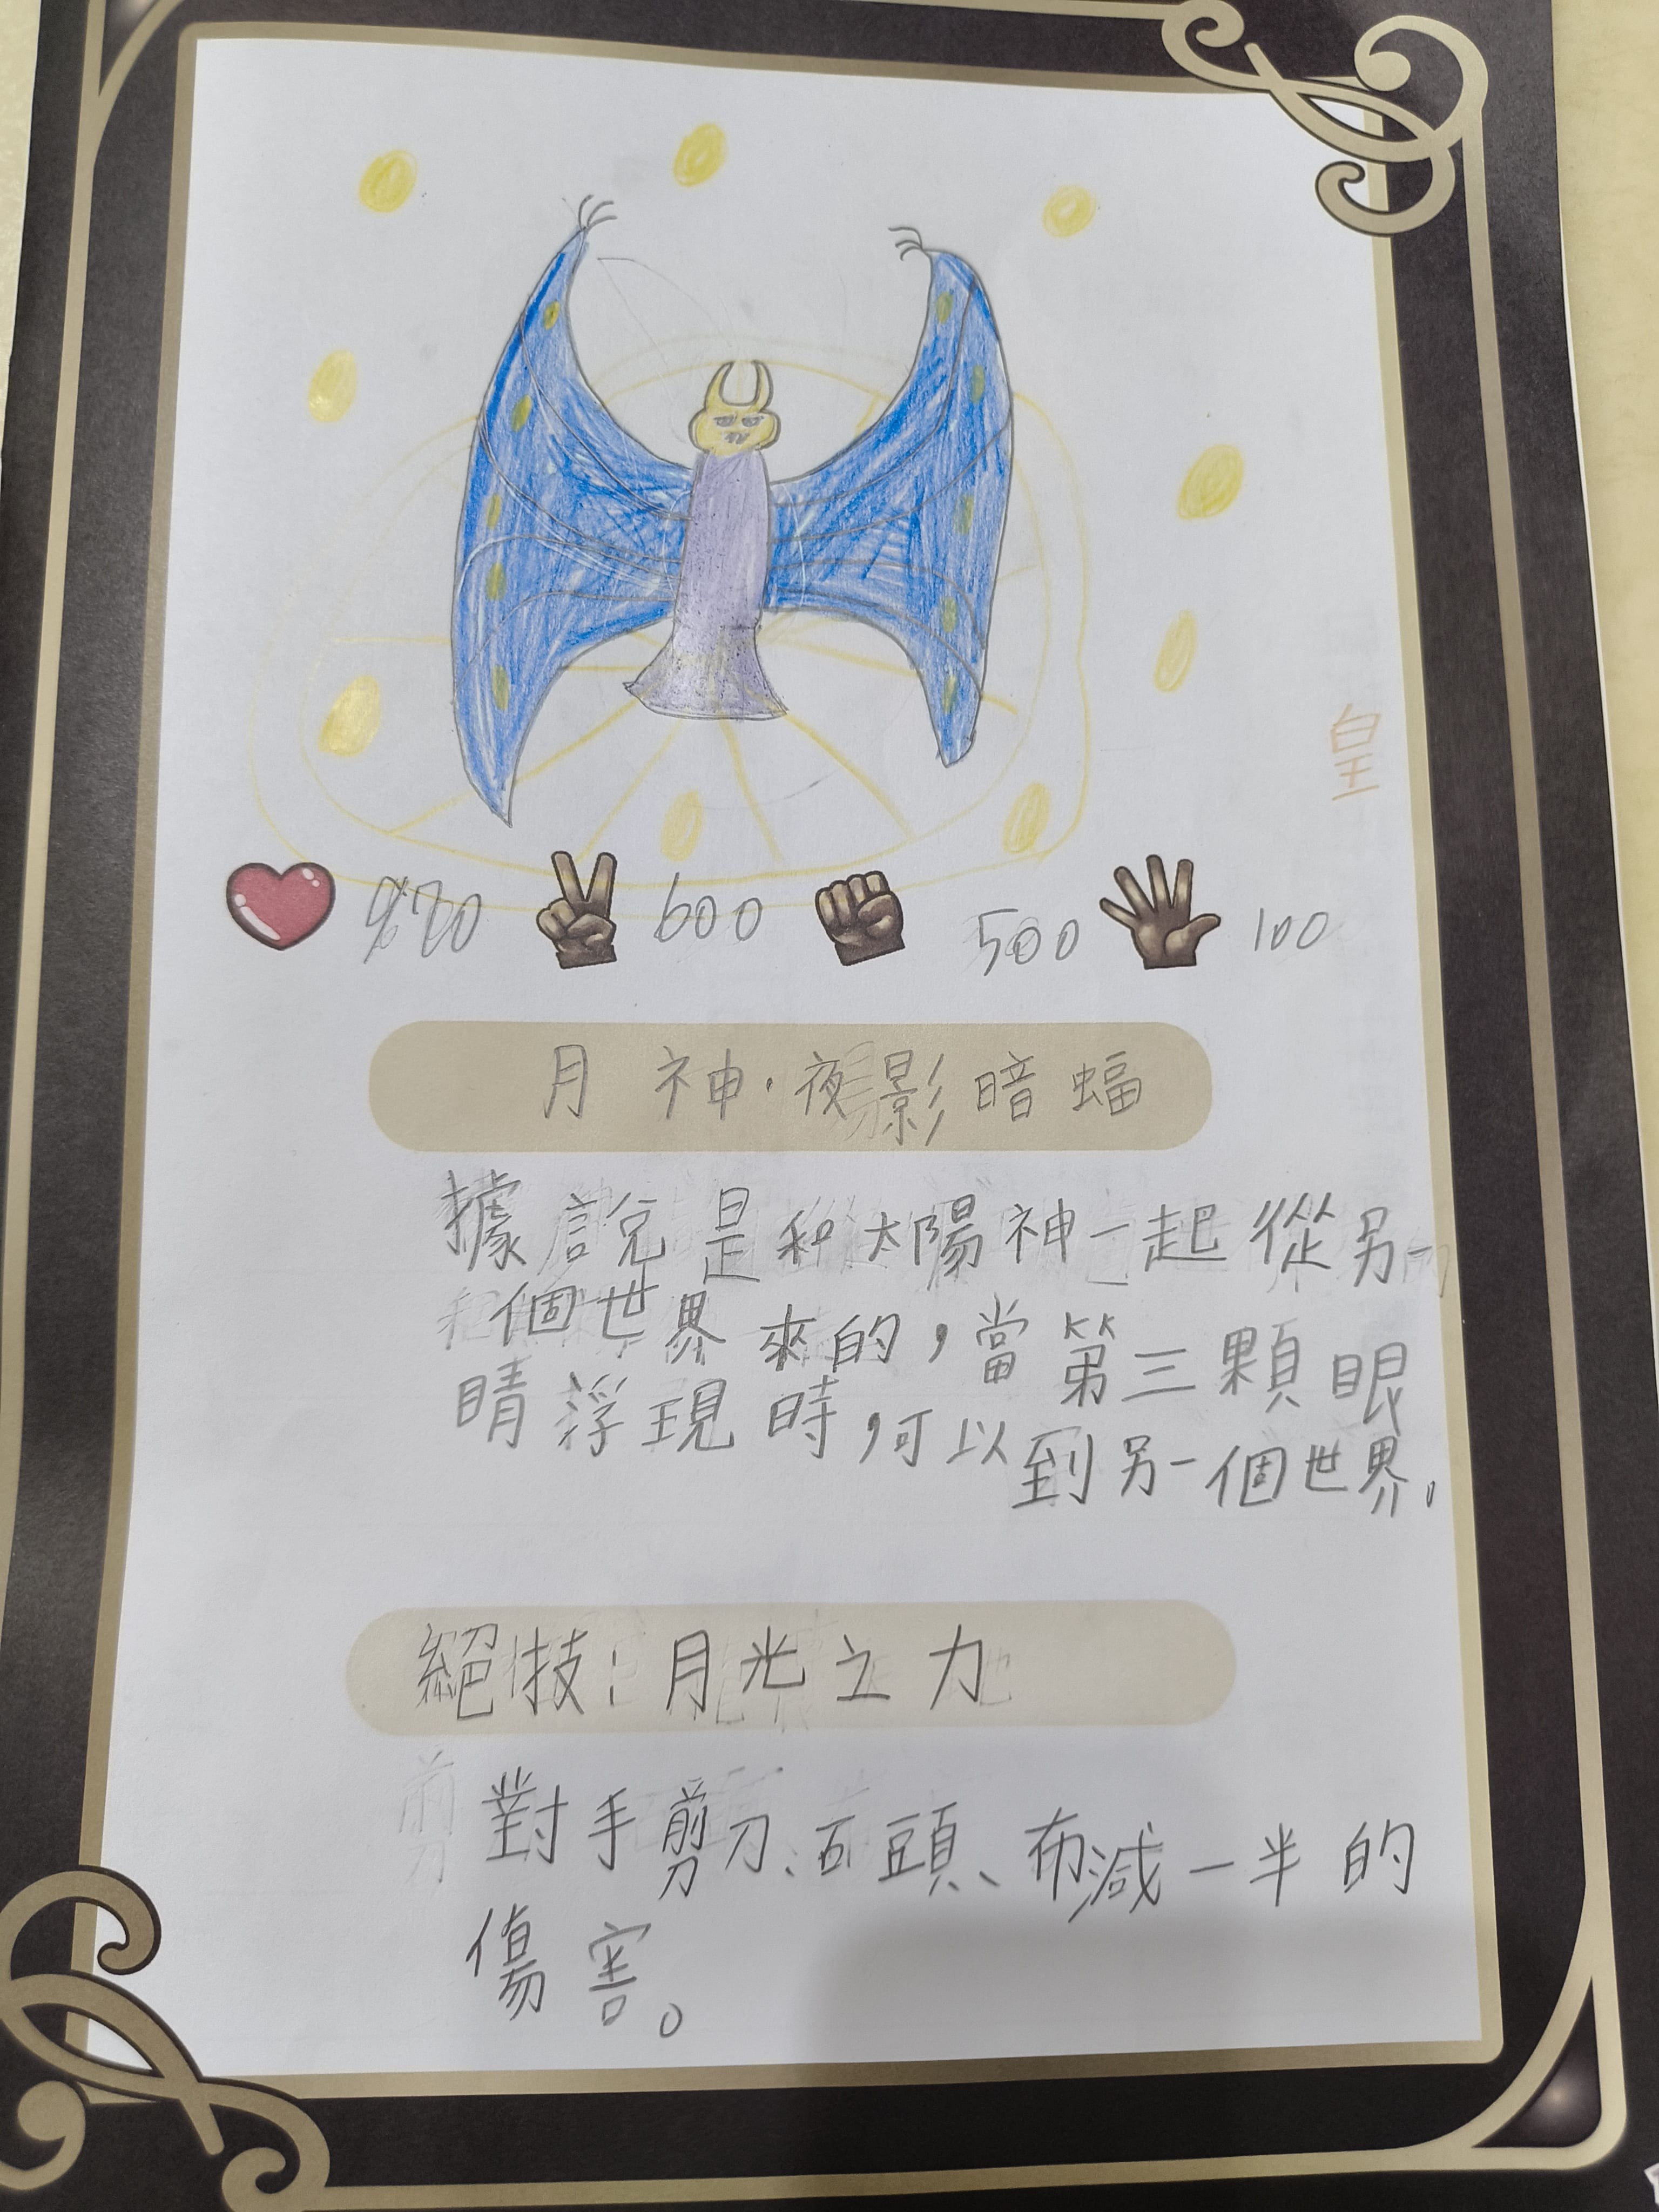 皇
600 500 100
月神·夜影暗蝠
據說是和太陽神一起從另一
個世界來的，當第三顆眼
睛浮現時，可以到另一個世界。
絕技：月光之力
對手剪刀、石頭、布減一半的
傷害。